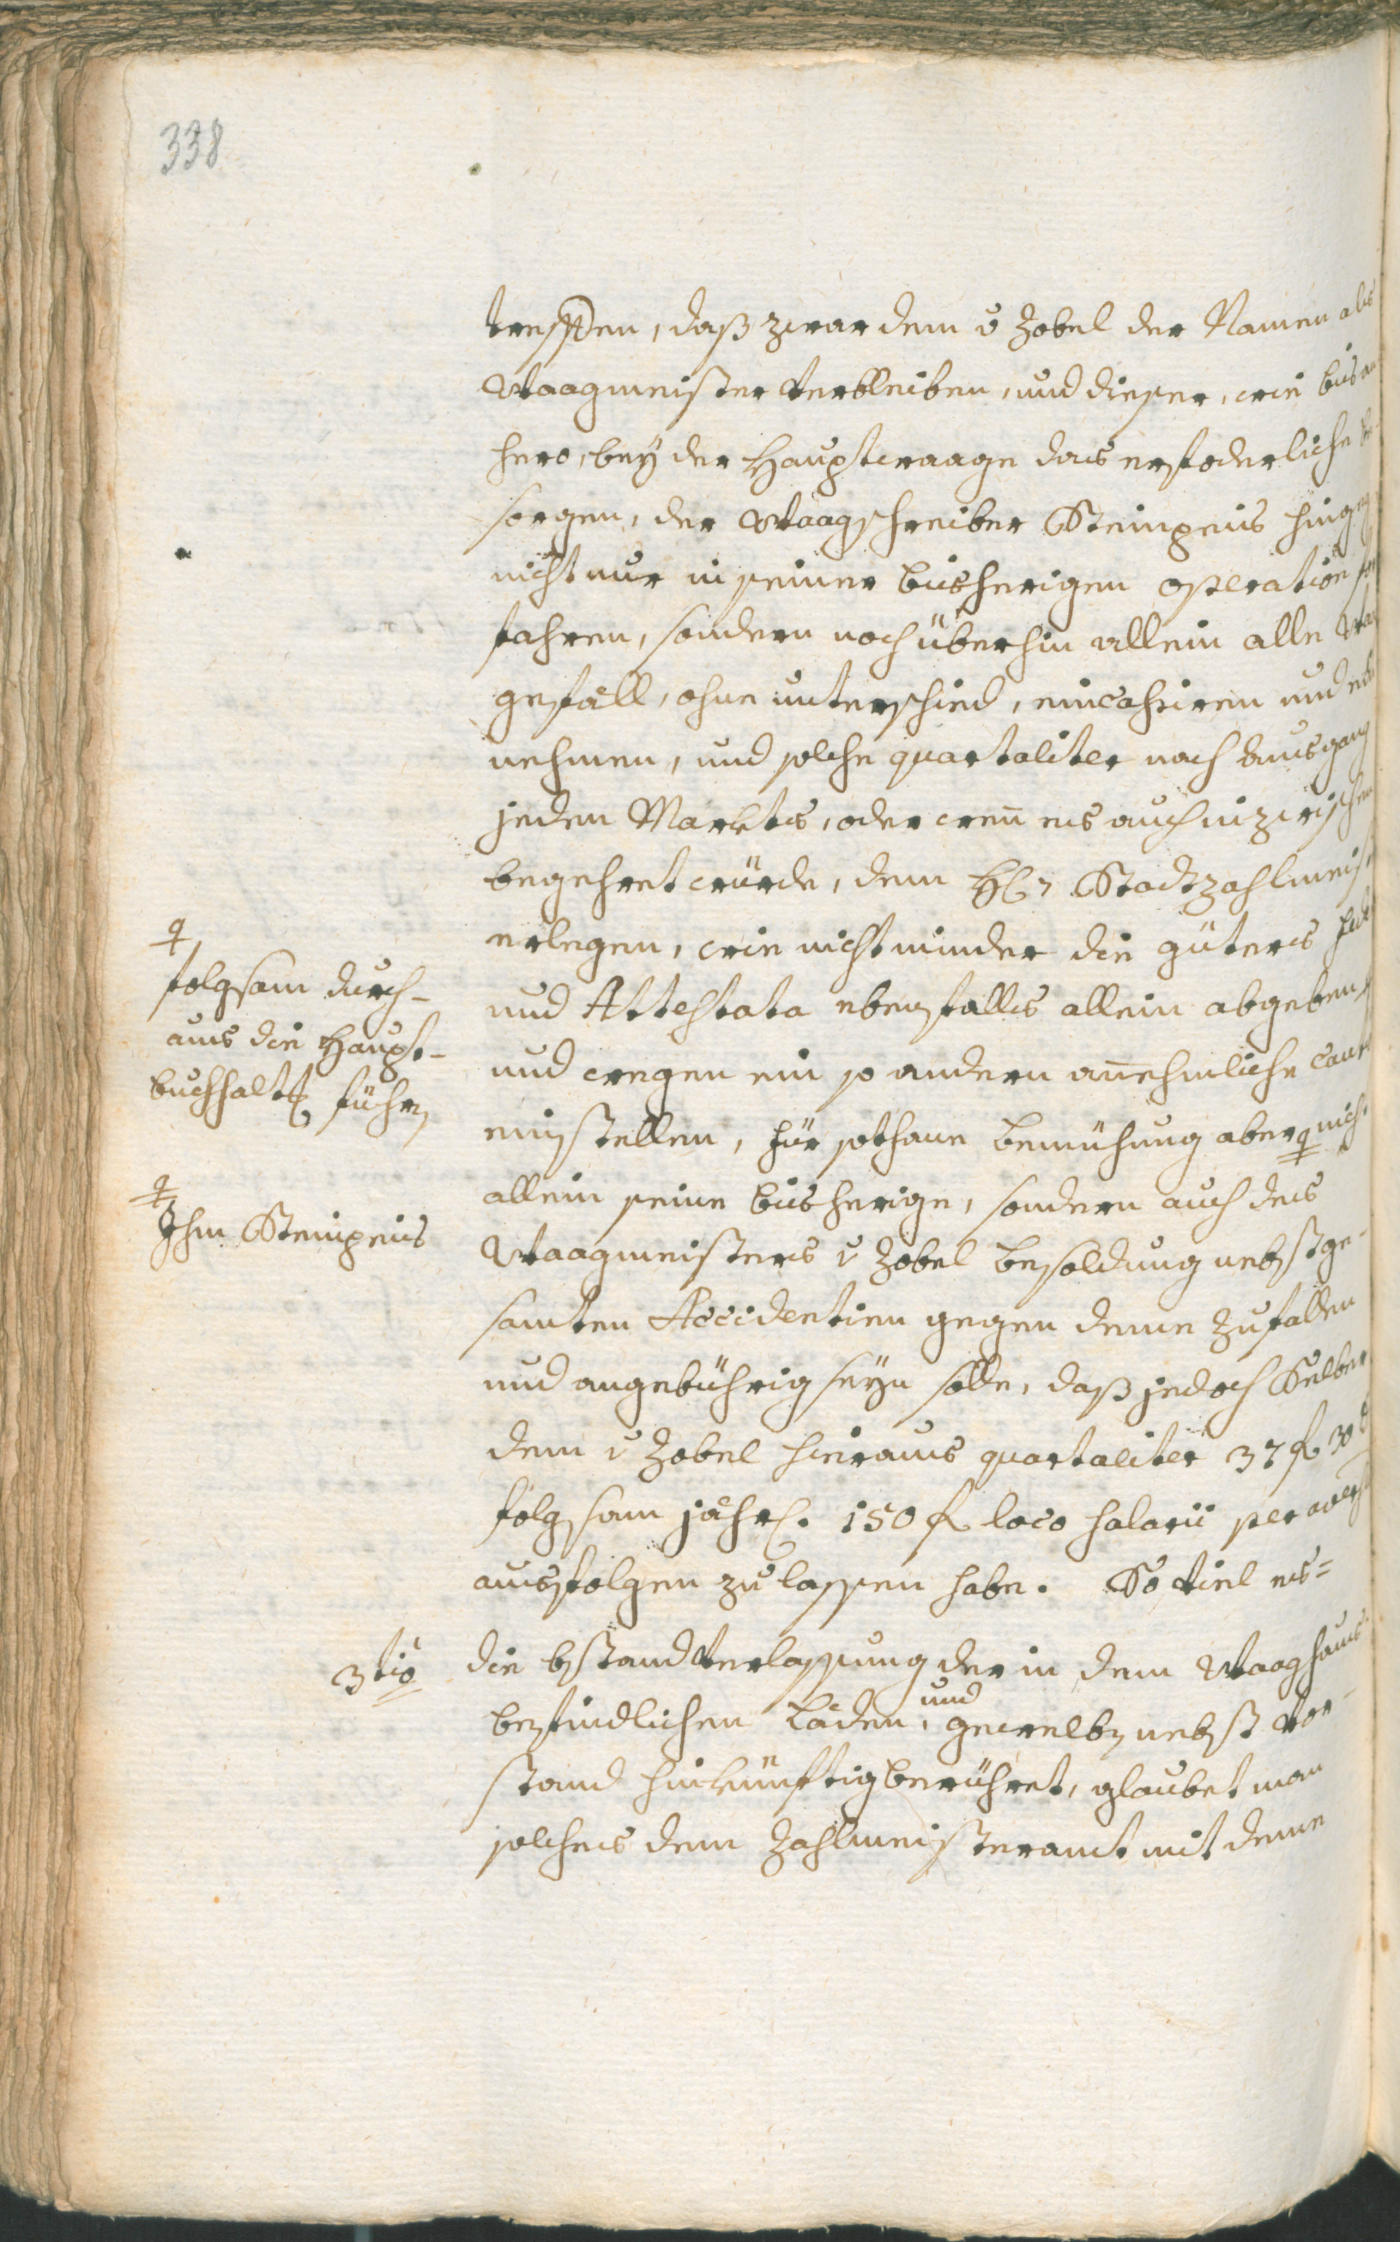 338
treffen, daß zwar dem v Zobel der Namen als
Waagmeister verbleiben, und dieser, wie bis an
hero, bey der Hauptwaage das erforderliche be-
sorgen, der Waagschreiber Steinpeis hinge
nicht nur in seiner bisherigen operation fort
fahren, sondern noch überhin allein alle Waag
gefäll, ohne unterschied, eincassiren und ein
nehmen, und solche quartaliter nach Ausgang
jeden Markts, oder wen̄ es auch inzwischen
begehret würde, dem H. Stadtzahlmeist
erlegen, wie nicht minder die güters
und Attestata ebenfalls allein abgeben,
und wegen ein so andern an̄ehmliche Caut
einstellen, für sothane bemühung aber nicht
allein seine bisherige, sondern auch des
Waagmeisters v Zobel besoldung nebst ge-
samten Accidentien gegen deme zufallen
und angebührig seyn solle, daß jedoch Selber
dem v Zobel hieraus quartaliter 37 f 30
folgsam jährl. 150 f loco salarii per avers
ausfolgen zu lassen habe. So viel es=
3tiò die bstandverlassung der in dem Waaghaus
befindlichen Läden, und gewelb nebst Vor-
stand hinkünftig berühret, glaubet man
solches dem Zahlmeisteramt mit deme
folgsam durch-
aus die Haupt-
buchhaltg führen
Ihm Steinpeis